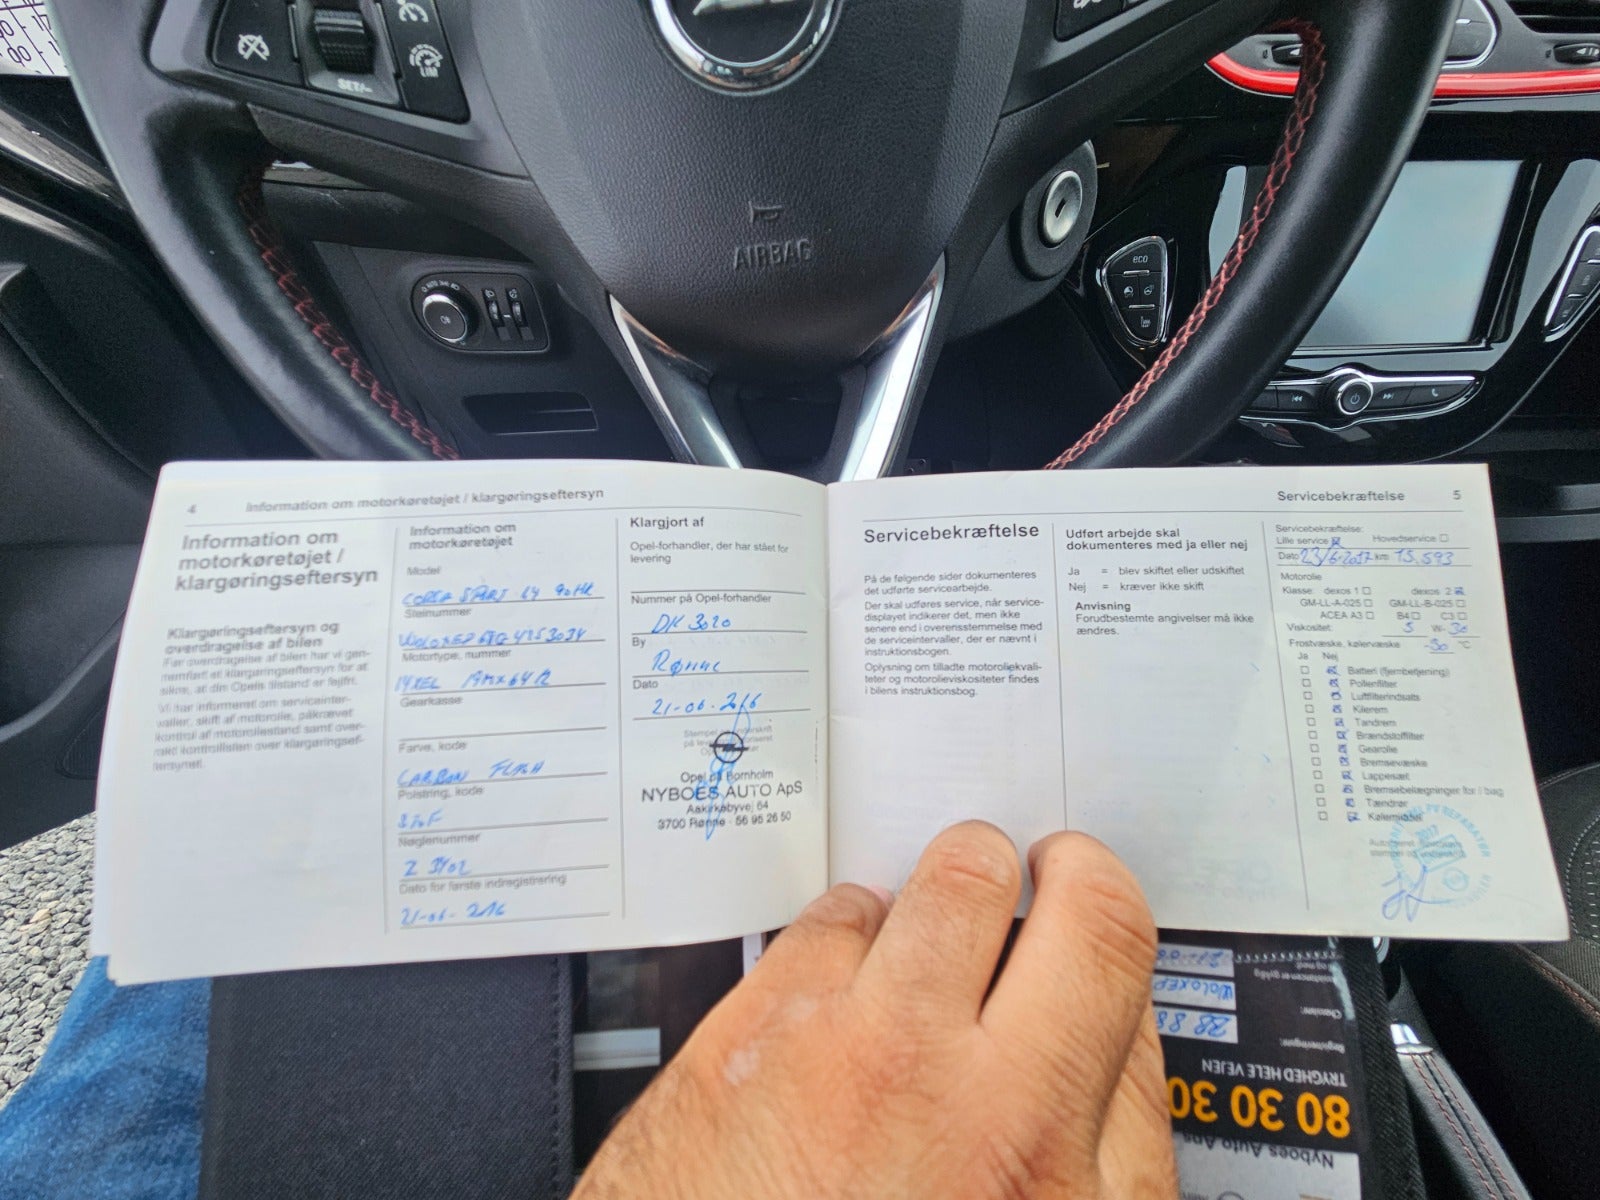 SET/-
LIM
AIRBAG
AUTO
eco
4 Information om motorkøretøjet / klargøringseftersyn
Information om
motorkøretøjet /
klargøringseftersyn
Klargøringseftersyn og
overdragelse af bilen
Før overdragelse af bilen har vi gen-
nemført et klargøringseftersyn for at
sikre, at din Opels tilstand er fejlfri.
Vi har informeret om serviceinter-
valler, skift af motorolie, påkrævet
kontrol af motoroliestand samt over-
rakt kontrollisten over klargøringsef-
tersynet.
Information om
motorkøretøjet
Model
CORSA SPORT 1.4 90HK
Stelnummer
Motortype, nummer
14XEL
Gearkasse
Farve, kode
CARBON FLASH
Polstring, kode
Nøglenummer
Z 3402
Dato for første indregistrering
21-06-2016
Klargjort af
Opel-forhandler, der har stået for
levering
Nummer på Opel-forhandler
DK 3020
By
Rønne
Dato
21-06-2016
Opel på Bornholm
NYBOES AUTO ApS
Aakirkebyvej 64
3700 Rønne - 56 95 26 50
Servicebekræftelse 5
Servicebekræftelse
På de følgende sider dokumenteres
det udførte servicearbejde.
Der skal udføres service, når service-
displayet indikerer det, men ikke
senere end i overensstemmelse med
de serviceintervaller, der er nævnt i
instruktionsbogen.
Oplysning om tilladte motoroliekvali-
teter og motorolieviskositeter findes
i bilens instruktionsbog.
Udført arbejde skal
dokumenteres med ja eller nej
Ja = blev skiftet eller udskiftet
Nej = kræver ikke skift
Anvisning
Forudbestemte angivelser må ikke
ændres.
Servicebekræftelse:
Lille service Hovedservice
Dato 23/6-2017 km 15.593
Motorolie
Klasse: dexos 1 dexos 2
GM-LL-A-025 GM-LL-B-025
ACEA A3 B4 C3
Viskositet: 5 W- 30
Frostvæske, kølervæske -30 °C
Ja Nej
Batteri (fjernbetjening)
Pollenfilter
Luftfilterindsats
Kilerem
Tandrem
Brændstoffilter
Gearolie
Bremsevæske
Lappesæt
Bremsebelægninger for / bag
Tændrør
Kølemiddel
2017
Nyboes Auto Aps
80 30 30
TRYGHED HELE VEJEN